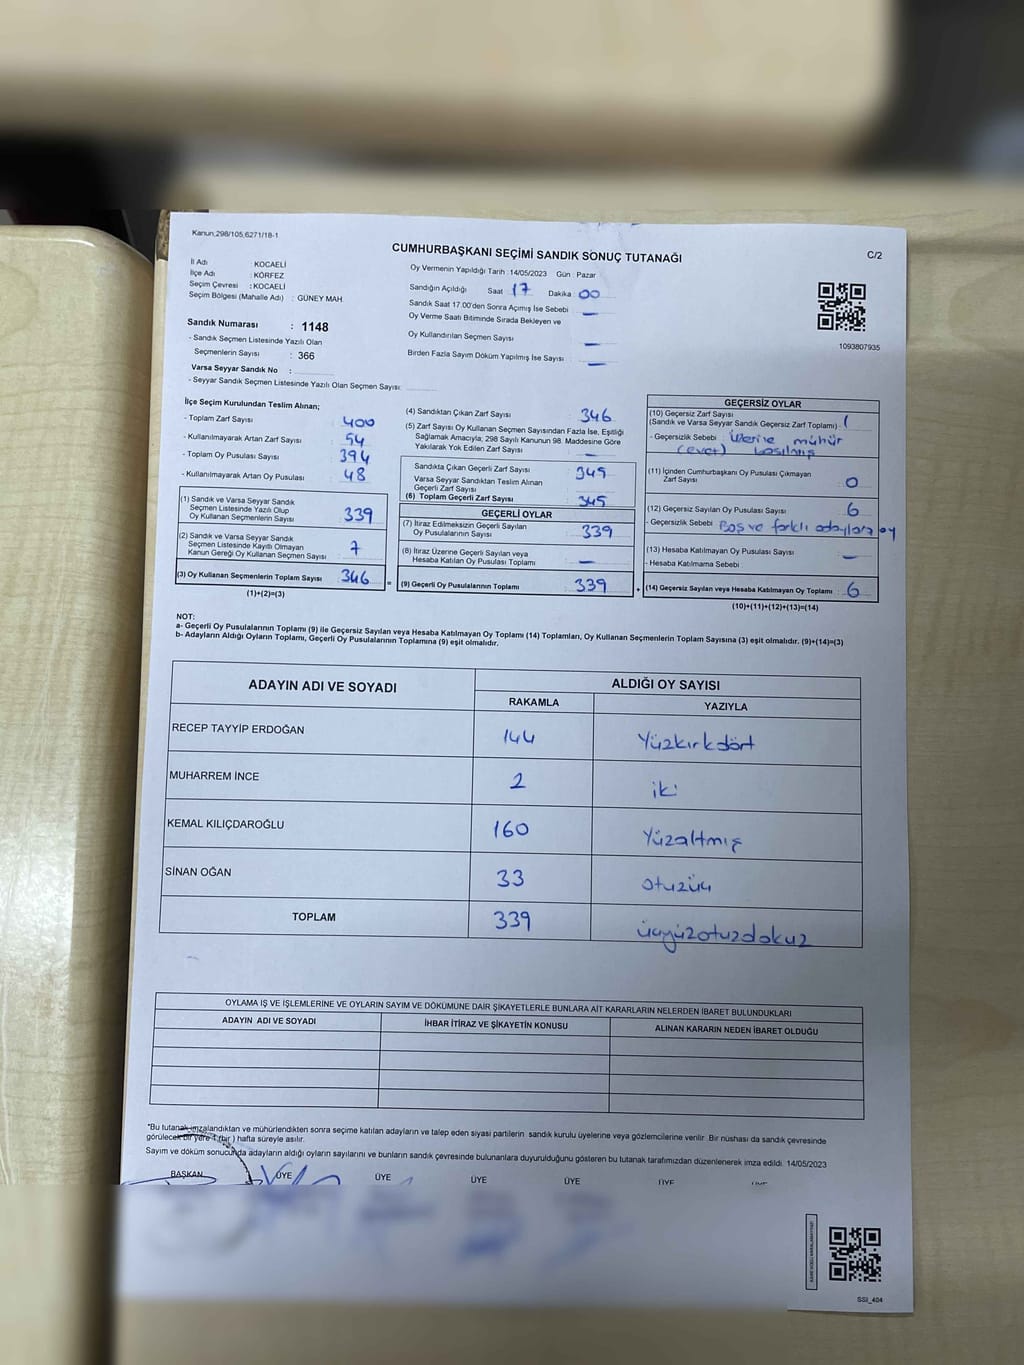 Kanun,298/105,6271/18-1
CUMHURBAŞKANI SEÇİMİ SANDIK SONUÇ TUTANAĞI
C/2
İl Adı : KOCAELİ
İlçe Adı : KÖRFEZ
Seçim Çevresi : KOCAELİ
Seçim Bölgesi (Mahalle Adı) : GÜNEY MAH.
Oy Vermenin Yapıldığı Tarih : 14/05/2023 Gün : Pazar
Sandığın Açıldığı Saat 17 Dakika 00
Sandık Saat 17.00'den Sonra Açımış İse Sebebi
Oy Verme Saati Bitiminde Sırada Bekleyen ve
Oy Kullandırılan Seçmen Sayısı : —
Birden Fazla Sayım Döküm Yapılmış İse Sayısı : —
1093807935
Sandık Numarası : 1148
- Sandık Seçmen Listesinde Yazılı Olan
Seçmenlerin Sayısı : 366
Varsa Seyyar Sandık No :
- Seyyar Sandık Seçmen Listesinde Yazılı Olan Seçmen Sayısı:
İlçe Seçim Kurulundan Teslim Alınan;
- Toplam Zarf Sayısı : 400
- Kullanılmayarak Artan Zarf Sayısı : 54
- Toplam Oy Pusulası Sayısı : 394
- Kullanılmayarak Artan Oy Pusulası : 48
(1) Sandık ve Varsa Seyyar Sandık
Seçmen Listesinde Yazılı Olup
Oy Kullanan Seçmenlerin Sayısı : 339
(2) Sandık ve Varsa Seyyar Sandık
Seçmen Listesinde Kayıtlı Olmayan
Kanun Gereği Oy Kullanan Seçmen Sayısı : 7
(3) Oy Kullanan Seçmenlerin Toplam Sayısı : 346 =
(1)+(2)=(3)
(4) Sandıktan Çıkan Zarf Sayısı : 346
(5) Zarf Sayısı Oy Kullanan Seçmen Sayısından Fazla İse, Eşitliği
Sağlamak Amacıyla; 298 Sayılı Kanunun 98. Maddesine Göre
Yakılarak Yok Edilen Zarf Sayısı : —
Sandıkta Çıkan Geçerli Zarf Sayısı : 345
Varsa Seyyar Sandıktan Teslim Alınan
Geçerli Zarf Sayısı
(6) Toplam Geçerli Zarf Sayısı : 345
GEÇERLİ OYLAR
(7) İtiraz Edilmeksizin Geçerli Sayılan
Oy Pusulalarının Sayısı : 339
(8) İtiraz Üzerine Geçerli Sayılan veya
Hesaba Katılan Oy Pusulası Toplamı : —
(9) Geçerli Oy Pusulalarının Toplamı : 339 +
GEÇERSİZ OYLAR
(10) Geçersiz Zarf Sayısı
(Sandık ve Varsa Seyyar Sandık Geçersiz Zarf Toplamı) : 1
- Geçersizlik Sebebi : üzerine mühür
(evet) basılmış
(11) İçinden Cumhurbaşkanı Oy Pusulası Çıkmayan
Zarf Sayısı : 0
(12) Geçersiz Sayılan Oy Pusulası Sayısı : 6
- Geçersizlik Sebebi : Boş ve farklı adaylara oy
(13) Hesaba Katılmayan Oy Pusulası Sayısı : —
- Hesaba Katılmama Sebebi
(14) Geçersiz Sayılan veya Hesaba Katılmayan Oy Toplamı : 6
(10)+(11)+(12)+(13)=(14)
NOT:
a- Geçerli Oy Pusulalarının Toplamı (9) ile Geçersiz Sayılan veya Hesaba Katılmayan Oy Toplamı (14) Toplamları, Oy Kullanan Seçmenlerin Toplam Sayısına (3) eşit olmalıdır. (9)+(14)=(3)
b- Adayların Aldığı Oyların Toplamı, Geçerli Oy Pusulalarının Toplamına (9) eşit olmalıdır.
ADAYIN ADI VE SOYADI ALDIĞI OY SAYISI
RAKAMLA YAZIYLA
RECEP TAYYİP ERDOĞAN 144 Yüzkırkdört
MUHARREM İNCE 2 iki
KEMAL KILIÇDAROĞLU 160 Yüzaltmış
SİNAN OĞAN 33 otuzüç
TOPLAM 339 üçyüzotuzdokuz
OYLAMA İŞ VE İŞLEMLERİNE VE OYLARIN SAYIM VE DÖKÜMÜNE DAİR ŞİKAYETLERLE BUNLARA AİT KARARLARIN NELERDEN İBARET BULUNDUKLARI
ADAYIN ADI VE SOYADI İHBAR İTİRAZ VE ŞİKAYETİN KONUSU ALINAN KARARIN NEDEN İBARET OLDUĞU
*Bu tutanak imzalandıktan ve mühürlendikten sonra seçime katılan adayların ve talep eden siyasi partilerin sandık kurulu üyelerine veya gözlemcilerine verilir. Bir nüshası da sandık çevresinde
görülecek bir yere 1 (bir) hafta süreyle asılır.
Sayım ve döküm sonucunda adayların aldığı oyların sayılarını ve bunların sandık çevresinde bulunanlara duyurulduğunu gösteren bu tutanak tarafımızdan düzenlenerek imza edildi. 14/05/2023
BAŞKAN ÜYE ÜYE ÜYE ÜYE ÜYE
SSI_404